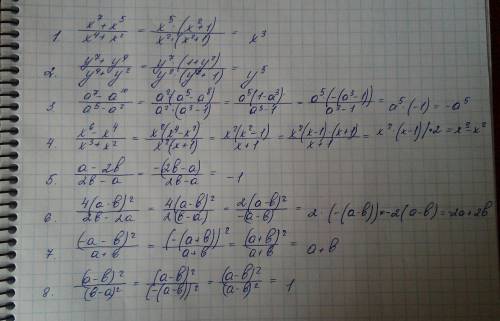 1. (x⁷+x⁵)/(x⁴+x²) = x⁵·(x²+1)/x²·(x²+1) = x³
2. (y⁷+y⁹)/(y⁴+y²) = y⁷·(1+y²)/y²(y²+1) = y⁵
3 (a⁷-a¹⁰)/(a⁵-a²) = a²(a⁵-a⁸)/a²·(a³-1) = a⁵(1-a³)/(a³-1) = a⁵(-(a³-1))/(a³-1) = a⁵·(-1) = -a⁵
4. (x⁶-x⁴)/(x³+x²) = x²(x⁴-x²)/x²(x+1) = x²(x²-1)/(x+1) = x²(x-1)·(x+1)/(x+1) = x²·(x-1) = x³-x²
5. (a-2b)/(2b-a) = -(2b-a)/(2b-a) = -1
6. 4(a-b)²/(2b-2a) = 4(a-b)²/2(b-a) = 2(a-b)²/-(a-b) = 2·(-(a-b)) = -2(a-b) = -2a+2b
7. (-a-b)²/(a+b) = (-(a+b))²/(a+b) = (a+b)²/(a+b) = a+b
8. (a-b)²/(b-a)² = (a-b)²/(-(a-b))² = (a-b)²/(a-b)² = 1